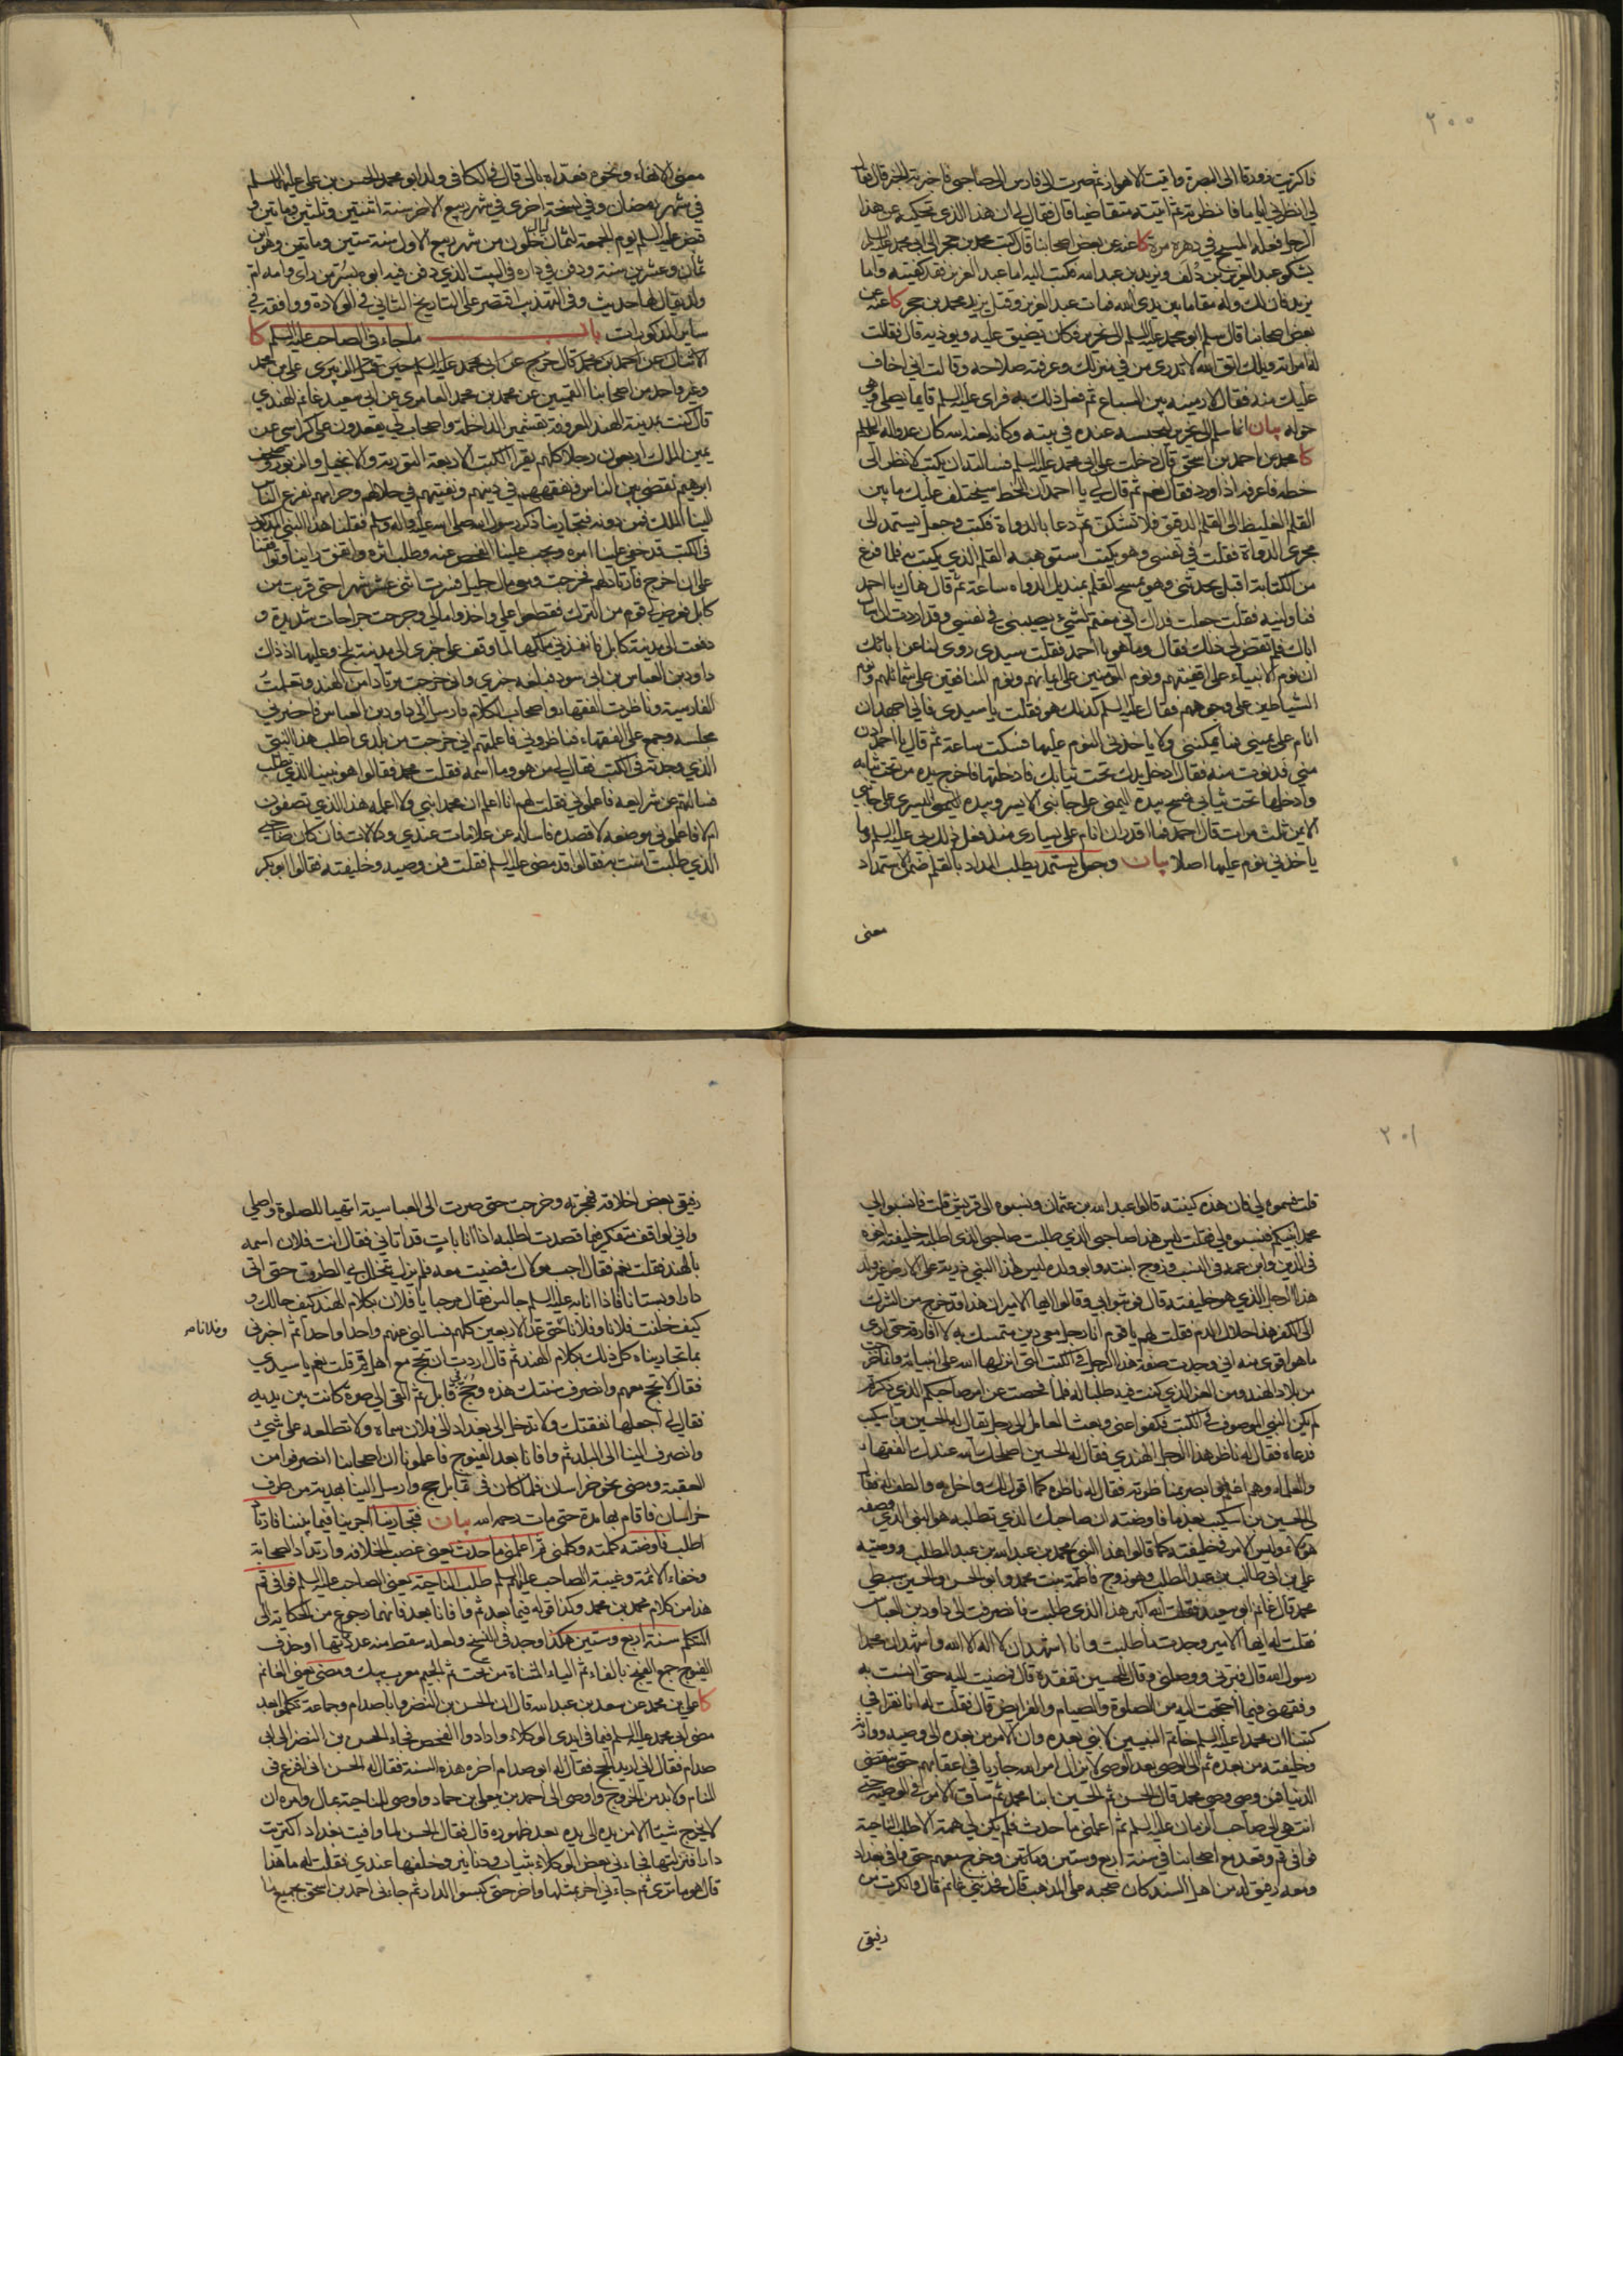 ٢٠٠
فاكتريت زورقا الى البصرة وافيت الاهواز ثم صرت الى فارس الى صاحبى فاخبرته الخبر فقال
لى انظرنى اياما فانظرته ثم اتيته متقاضيا قال فقال لى ان هذا الذى تحكيه عن هذا
الرجل فعله المسيح فى دهره مرة كا عنه عن بعض اصحابنا قال كتب محمد بن حجر الى ابى محمد عليه السلم
يشكو عبد العزيز بن دلف ويزيد بن عبد الله فكتب اليه اما عبد العزيز فقد كفيته واما
يزيد فان لك وله مقاما بين يدى الله فمات عبد العزيز وقتل يزيد محمد بن حجر كا عنه عن
بعض اصحابنا قال سلم ابو محمد عليه السلم الى نحرير فكان يضيق عليه ويوذيه قال فقالت
له امراته ويلك اتق الله لا تدرى من فى منزلك وعرفته صلاحه وقالت انى اخاف
عليك منه فقال لارمينه بين السباع ثم فعل ذلك به فراى عليه السلم قايما يصلى وهى
حوله بيان انما سلم الى نحرير لحبسه عنده فى بيته وكانه لعنه الله كان عدوا له
كا محمد بن احمد بن اسحق قال دخلت على ابى محمد عليه السلم فسالته ان يكتب لانظر الى
خطه فاعرفه اذا ورد فقال نعم ثم قال لى يا احمد ان الخط سيختلف عليك ما بين
القلم الغليظ الى القلم الدقيق فلا تشكن ثم دعا بالدواة فكتب وجعل يستمد الى
مجرى الدواة فقلت فى نفسى وهو يكتب استوهبه القلم الذى يكتب به فلما فرغ
من الكتابة اقبل يحدثنى وهو يمسح القلم بمنديل الدواه ساعة ثم قال هاك يا احمد
فناولنيه فقلت جعلت فداك انى مغتم لشىء يصيبنى فى نفسى وقد اردت ان اسال
اباك فلم يقض لى ذلك فقال وما هو يا احمد فقلت سيدى روى لنا عن ابائك
ان نوم الانبياء على اقفيتهم ونوم المومنين على ايمانهم ونوم المنافقين على شمائلهم ونوم
الشياطين على وجوههم فقال عليه السلم كذلك هو فقلت يا سيدى فانى اجهد ان
انام على يمينى فما يمكننى ولا ياخذنى النوم عليها فسكت ساعة ثم قال يا احمد ادن
منى فدنوت منه فقال ادخل يدك تحت ثيابك فادخلتها فاخرج يده من تحت ثيابه
وادخلها تحت ثيابى فمسح بيده اليمنى على جانبى الايسر وبيده اليسرى على جانبى
الايمن ثلث مرات قال احمد فما اقدر ان انام على يسارى منذ فعل ذلك بى عليه السلم وما
ياخذنى نوم عليها اصلا بيان وجعل يستمد يطلب المداد بالقلم ضمن الاستمداد
معنى
معنى الانتهاء ونحوه فعداه بالى قال فى الكافى ولد ابو محمد الحسن بن على عليهما السلم
فى شهر رمضان وفى نسخة اخرى فى شهر ربيع الاخر سنة اثنتين وثلثين ومائتين و
قبض عليه السلم يوم الجمعة لثمان ليال خلون من شهر ربيع الاول سنة ستين ومائتين وهو ابن
ثمان وعشرين سنة ودفن فى داره فى البيت الذى دفن فيه ابوه بسر من راى وامه ام
ولد يقال لها حديث وفى التهذيب اقتصر على التاريخ الثانى فى الولادة ووافقه فى
ساير المذكورات باب ما جاء فى الصاحب عليه السلم كا
الاثنان عن احمد بن محمد قال خرج عن ابى محمد عليه السلم حين قتل الزبيرى على بن محمد
وغير واحد من اصحابنا القميين عن محمد بن محمد العامرى عن ابى سعيد غانم الهندى
قال كنت بمدينة الهند المعروفة بقشمير الداخلة واصحاب لى يقعدون على كراسى عن
يمين الملك اربعون رجلا كلهم يقرا الكتب الاربعة التورية والانجيل والزبور وصحف
ابرهيم نقضى بين الناس ونفقههم فى دينهم ونفتيهم فى حلالهم وحرامهم يفزع الناس
الينا الملك فمن دونه فتجارينا ذكر رسول الله صلى الله عليه واله وسلم فقلنا هذا النبى المذكور
فى الكتب قد خفى علينا امره ويجب علينا الفحص عنه وطلب اثره واتفق راينا وتوافقنا
على ان اخرج فارتاد لهم فخرجت ومعى مال جليل فسرت اثنى عشر شهرا حتى قربت من
كابل فعرض لى قوم من الترك فقطعوا على واخذوا مالى وجرحت جراحات شديدة و
دفعت الى مدينة كابل فانفذنى ملكها لما وقف على خبرى الى مدينة بلخ وعليها اذ ذاك
داود بن العباس بن ابى سود فبلغه خبرى وانى خرجت مرتادا من الهند وتعلمت
الفارسية وناظرت الفقهاء واصحاب الكلام فارسل الى داود بن العباس فاحضرنى
مجلسه وجمع على الفقهاء فناظرونى فاعلمتهم انى خرجت من بلدى اطلب هذا النبى
الذى وجدته فى الكتب فقال لى من هو وما اسمه فقلت محمد فقالوا هو نبينا الذى تطلب
فسالتهم عن شرايعه فاعلمونى فقلت لهم انا اعلم ان محمدا نبى ولا اعلمه هذا الذى تصفون
ام لا فاعلمونى موضعه لاقصده فاساله عن علامات عندى ودلالات فان كان صاحبى
الذى طلبت امنت به فقالوا قد مضى عليه السلم فقلت فمن وصيه وخليفته فقالوا ابو بكر
٢٠١
قلت فسموه لى فان هذه كنيته قالوا عبد الله بن عثمان ونسبوه الى قريش قلت فانسبوا لى
محمدا نبيكم فنسبوه لى فقلت ليس هذا صاحبى الذى طلبت صاحبى الذى اطلبه خليفته اخوه
فى الدين وابن عمه فى النسب وزوج ابنته وابو ولده ليس لهذا النبى ذرية على الارض غير ولد
هذا الرجل الذى هو خليفته قال فوثبوا بى وقالوا ايها الامير ان هذا قد خرج من الشرك
الى الكفر هذا حلال الدم فقلت لهم يا قوم انا رجل معى دين متمسك به لا افارقه حتى ارى
ما هو اقوى منه انى وجدت صفة هذا الرجل فى الكتب التى انزلها الله على انبيائه وانما خرجت
من بلاد الهند ومن العز الذى كنت فيه طلبا له فلما فحصت عن امر صاحبكم الذى ذكرتم
لم يكن النبى الموصوف فى الكتب فكفوا عنى وبعث العامل الى رجل يقال له الحسين بن اسكيب
فدعاه فقال له ناظر هذا الرجل الهندى فقال له الحسين اصلحك الله عندك الفقهاء
والعلماء وهم اعلم وابصر بمناظرته فقال له ناظره كما اقول لك واخل به والطف له فقال
لى الحسين بن اسكيب بعد ما فاوضته ان صاحبك الذى تطلبه هو النبى الذى وصفه
هؤلاء وليس الامر فى خليفته كما قالوا هذا النبى محمد بن عبد الله بن عبد المطلب ووصيه
على بن ابى طالب بن عبد المطلب وهو زوج فاطمة بنت محمد وابو الحسن والحسين سبطى
محمد قال غانم ابو سعيد فقلت الله اكبر هذا الذى طلبت فانصرفت الى داود بن العباس
فقلت له ايها الامير وجدت ما طلبت وانا اشهد ان لا اله الا الله واشهد ان محمدا
رسول الله قال فبرنى ووصلنى وقال للحسين تفقده قال فمضيت اليه حتى انست به
وفقهنى فيما احتجت اليه من الصلوة والصيام والفرايض قال فقلت له انا نقرا فى
كتبنا ان محمدا عليه السلم خاتم النبيين لا نبى بعده وان الامر من بعده الى وصيه ووارثه
وخليفته من بعده ثم الى الوصى بعد الوصى لا يزال امر الله جاريا فى اعقابهم حتى تنقضى
الدنيا فمن وصى وصى محمد قال الحسن ثم الحسين ابنا محمد ثم ساق الامر فى الوصية حتى
انتهى الى صاحب الزمان عليه السلم ثم اعلمنى ما حدث فلم يكن لى همة الا طلب الناحية
فوافى قم وقعد مع اصحابنا فى سنة اربع وستين ومائتين وخرج معهم حتى وافى بغداد
ومعه رفيق له من اهل السند كان صحبه على المذهب قال فحدثنى غانم قال وانكرت من
رفيقى
رفيقى بعض اخلاقه فهجرته وخرجت حتى صرت الى العباسية اتهيا للصلوة واصلى
وانى لواقف متفكر فيما قصدت لطلبه اذا انا بات قد اتانى فقال انت فلان اسمه
بالهند فقلت نعم فقال اجب مولاك فمضيت معه فلم يزل يتخلل بى الطرق حتى اتى
دارا وبستانا فاذا انا به عليه السلم جالس فقال مرحبا يا فلان بكلام الهند كيف حالك و
كيف خلفت فلانا وفلانا حتى عد الاربعين كلهم فسالنى عنهم واحدا واحدا ثم اخبرنى
وفلانا
بما تجارينا كل ذلك بكلام الهند ثم قال اردت ان تحج مع اهل قم قلت نعم يا سيدى
فقال لا تحج معهم وانصرف سنتك هذه وحج فى قابل ثم القى الى صرة كانت بين يديه
فقال لى اجعلها نفقتك ولا تدخل الى بغداد الى فلان سماه ولا تطلعه على شىء
وانصرف الينا الى البلد ثم وافانا بعد الفيوج فاعلمونا ان اصحابنا انصرفوا من
العقبة ومضى نحو خراسان فلما كان فى قابل حج وارسل الينا بهدية من طرف
خراسان فاقام بها مدة حتى مات رحمه الله بيان فتجارينا اجرينا فيما بيننا فارتاد
اطلب فاوضته كلمته وكلمنى ثم اعلمنى ما حدث يعنى غصب الخلافه وارتداد الصحابة
وخفاء الائمة وغيبة الصاحب عليهم السلم طلب الناحية يعنى الصاحب عليه السلم فوافى قم
هذا من كلام محمد بن محمد وكذا قوله فيما بعد ثم وافانا بعد فانهما رجوع من الحكاية الى
التكلم سنة اربع وستين هكذا وجد فى النسخ ولعله سقط منه عدد المائة او حذف
الفيوج جمع الفيج بالفاء ثم الياء المثناة من تحت ثم الجيم معرب پيك ومضى يعنى الغانم
كا على بن محمد عن سعد بن عبد الله قال ان الحسن بن النضر وابا صدام وجماعة تكلموا بعد
مضى ابى محمد عليه السلم فيما فى ايدى الوكلاء وارادوا الفحص فجاء الحسن بن النضر الى ابى
صدام فقال انى اريد الحج فقال له ابو صدام اخره هذه السنة فقال له الحسن انى افزع فى
المنام ولا بد من الخروج واوصى الى احمد بن يعلى بن حماد واوصى للناحية بمال وامره ان
لا يخرج شيئا الا من يده الى يده بعد ظهوره قال فقال الحسن لما وافيت بغداد اكتريت
دارا فنزلتها فجاءنى بعض الوكلاء بثياب ودنانير وخلفها عندى فقلت له ما هذا
قال هو ما ترى ثم جاءنى اخر بمثلها واخر حتى كبسوا الدار ثم جاءنى احمد بن اسحق بجميع ما